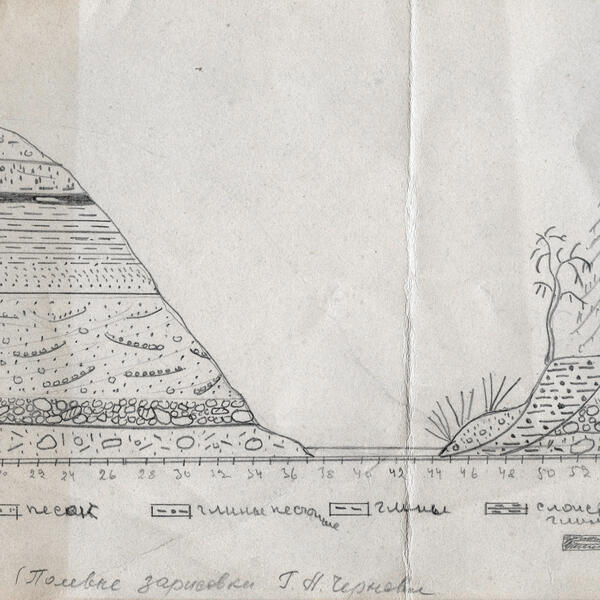 22 24 26 28 30 32 34 36 38 40 42 44 46 48 50 52
песок глины песчаные глины слоис
глин
(Полевые зарисовки Г. Н. Чернова